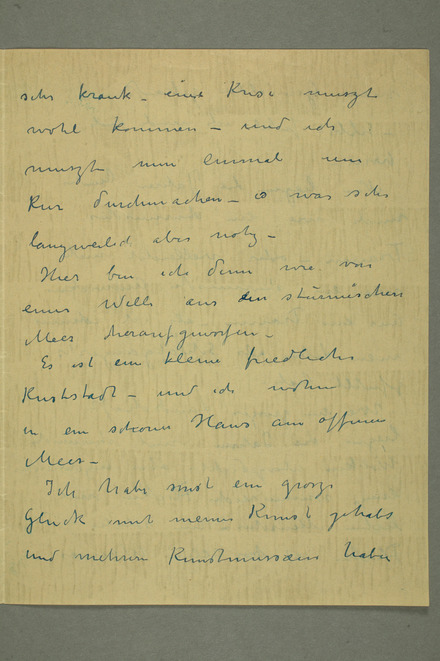 sehr krank – eine Krise muszt
wohl kommen – und ich
muszt nun einmal um
Kur durchmachen – es war sehr
langweilid aber nötig –
Hier bin ich denn wie von
einer Welle aus den stürmischen
Meer heraufgeworfen –
Es ist ein kleine friedliche
Küststadt – und ich wohne
in ein schönes Haus am offenen
Meer –
Ich habe sonst ein grosze
Glück mit meine Kunst gehabt
und mehrere Kunstmussæen haben